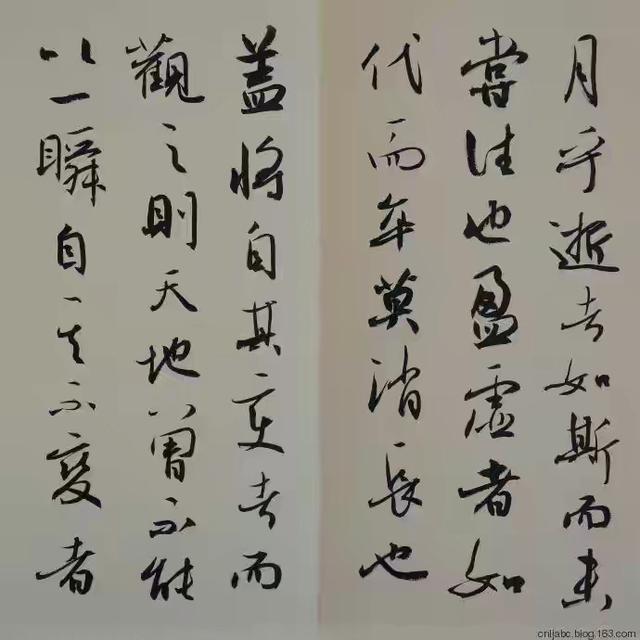 月乎逝者如斯而未
嘗往也盈虛者如
代而卒莫消長也
盖將自其变者而
觀之則天地曾不能
以一瞬自其不變者
cnljabc.blog.163.com